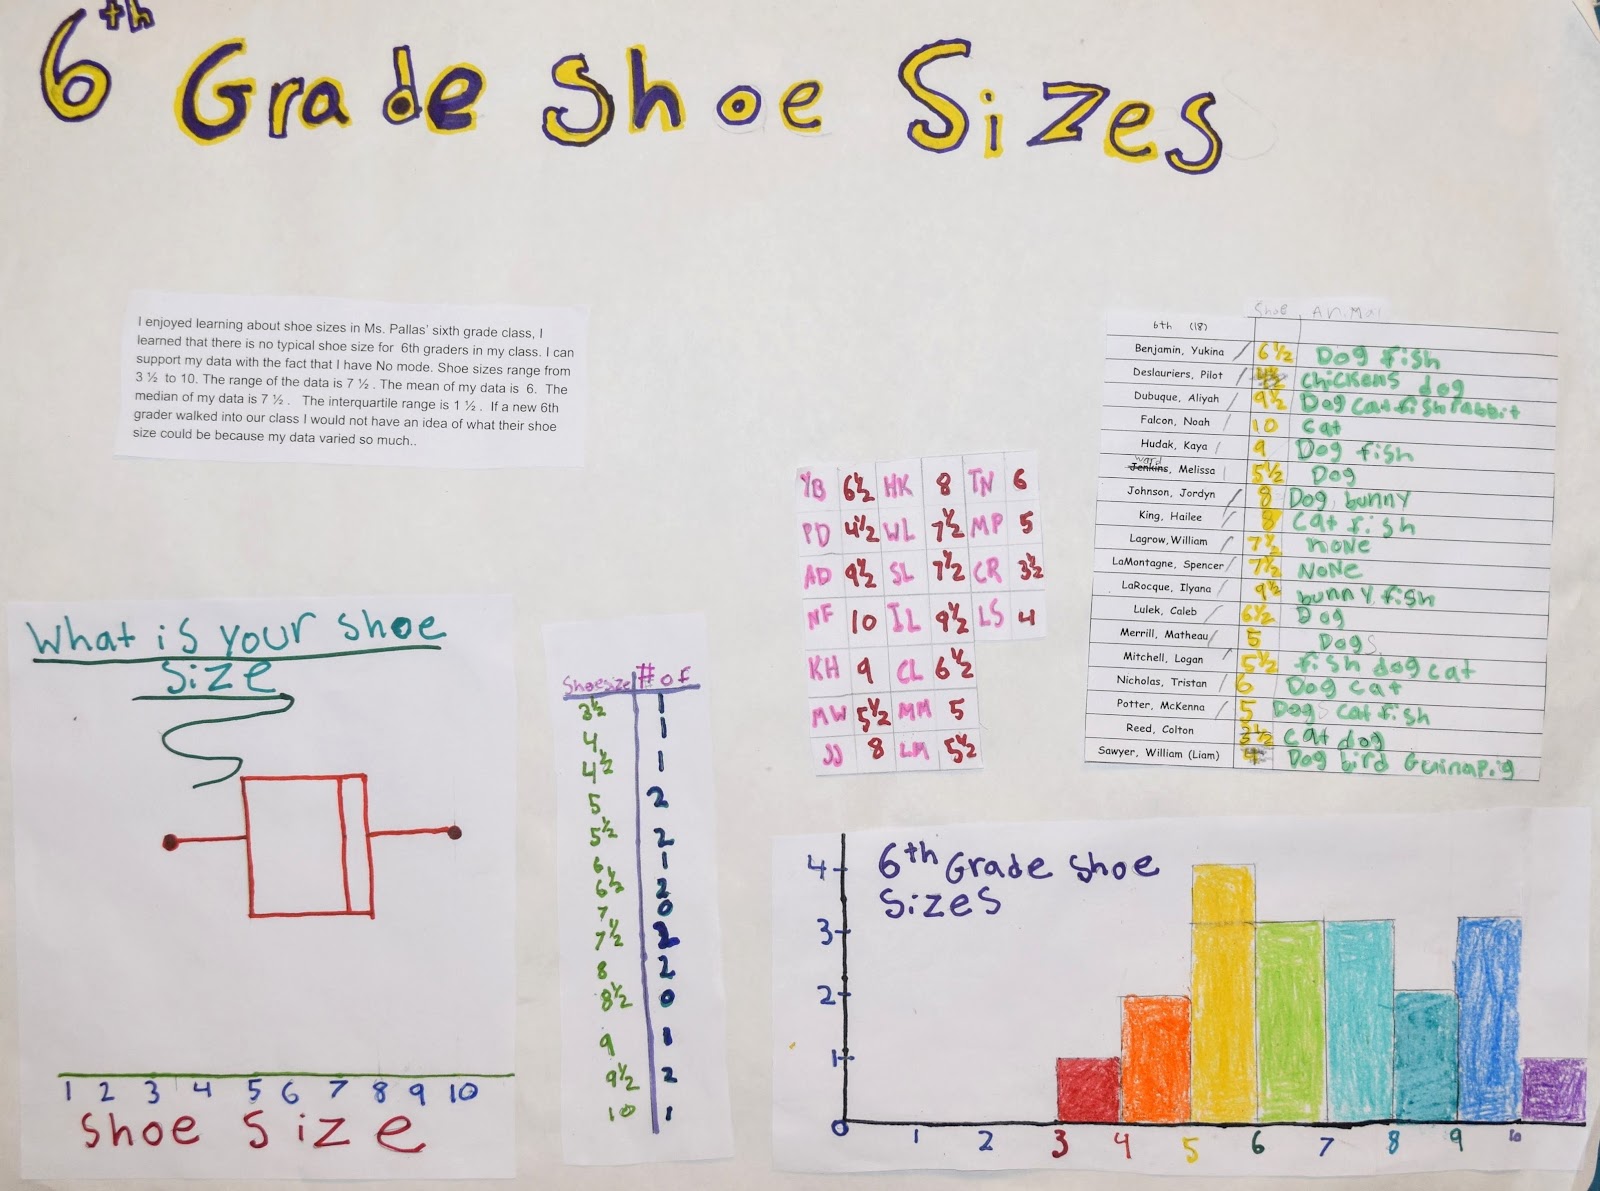 6th Grade Shoe Sizes
I enjoyed learning about shoe sizes in Ms. Pallas' sixth grade class, I
learned that there is no typical shoe size for 6th graders in my class. I can
support my data with the fact that I have No mode. Shoe sizes range from
3 ½ to 10. The range of the data is 7 ½ . The mean of my data is 6. The
median of my data is 7 ½ . The interquartile range is 1 ½ . If a new 6th
grader walked into our class I would not have an idea of what their shoe
size could be because my data varied so much..
Shoe Animal
6th (18)
Benjamin, Yukina 6½ Dog fish
Deslauriers, Pilot 4½ chickens dog
Dubuque, Aliyah 9½ Dog cat fish rabbit
Falcon, Noah 10 cat
Hudak, Kaya 9 Dog fish
ward
Jenkins, Melissa 5½ Dog
Johnson, Jordyn 8 Dog bunny
King, Hailee 8 cat fish
Lagrow, William 7½ noNe
LaMontagne, Spencer 7½ NoNe
LaRocque, Ilyana 9½ bunny fish
Lulek, Caleb 6½ Dog
Merrill, Matheau 5 Dogs
Mitchell, Logan 5½ fish dog cat
Nicholas, Tristan 6 Dog cat
Potter, McKenna 5 Dogs cat fish
Reed, Colton 3½ cat dog
Sawyer, William (Liam) 4 Dog bird Guinapig
YB 6½ HK 8 TN 6
PD 4½ WL 7½ MP 5
AD 9½ SL 7½ CR 3½
NF 10 IL 9½ LS 4
KH 9 CL 6½
MW 5½ MM 5
JJ 8 LM 5½
What is your shoe
size
1 2 3 4 5 6 7 8 9 10
Shoe Size
Shoesize # of
3½ 1
4 1
4½ 1
5 2
5½ 2
6 1
6½ 2
7 0
7½ 2
8 2
8½ 0
9 1
9½ 2
10 1
6th Grade Shoe
Sizes
4
3
2
1
0 1 2 3 4 5 6 7 8 9 10